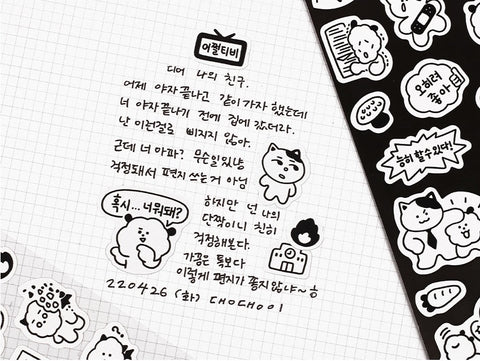 어쩔티비
디어 나의 친구.
어제 야자 끝나고 같이 가자 했는데
너 야자 끝나기 전에 집에 갔더라.
난 이런걸로 삐지지 않아.
근데 너 아파? 무슨일있냥
걱정돼서 편지 쓰는거 아님
하지만 넌 나의
단짝이니 친히
걱정해본다.
가끔은 톡보다
이렇게 편지가 좋지않냐~ㅎ
220426 (화) CHOCHOOI
혹시... 너 뭐돼?
오히려
좋아
능히 할 수 있다!